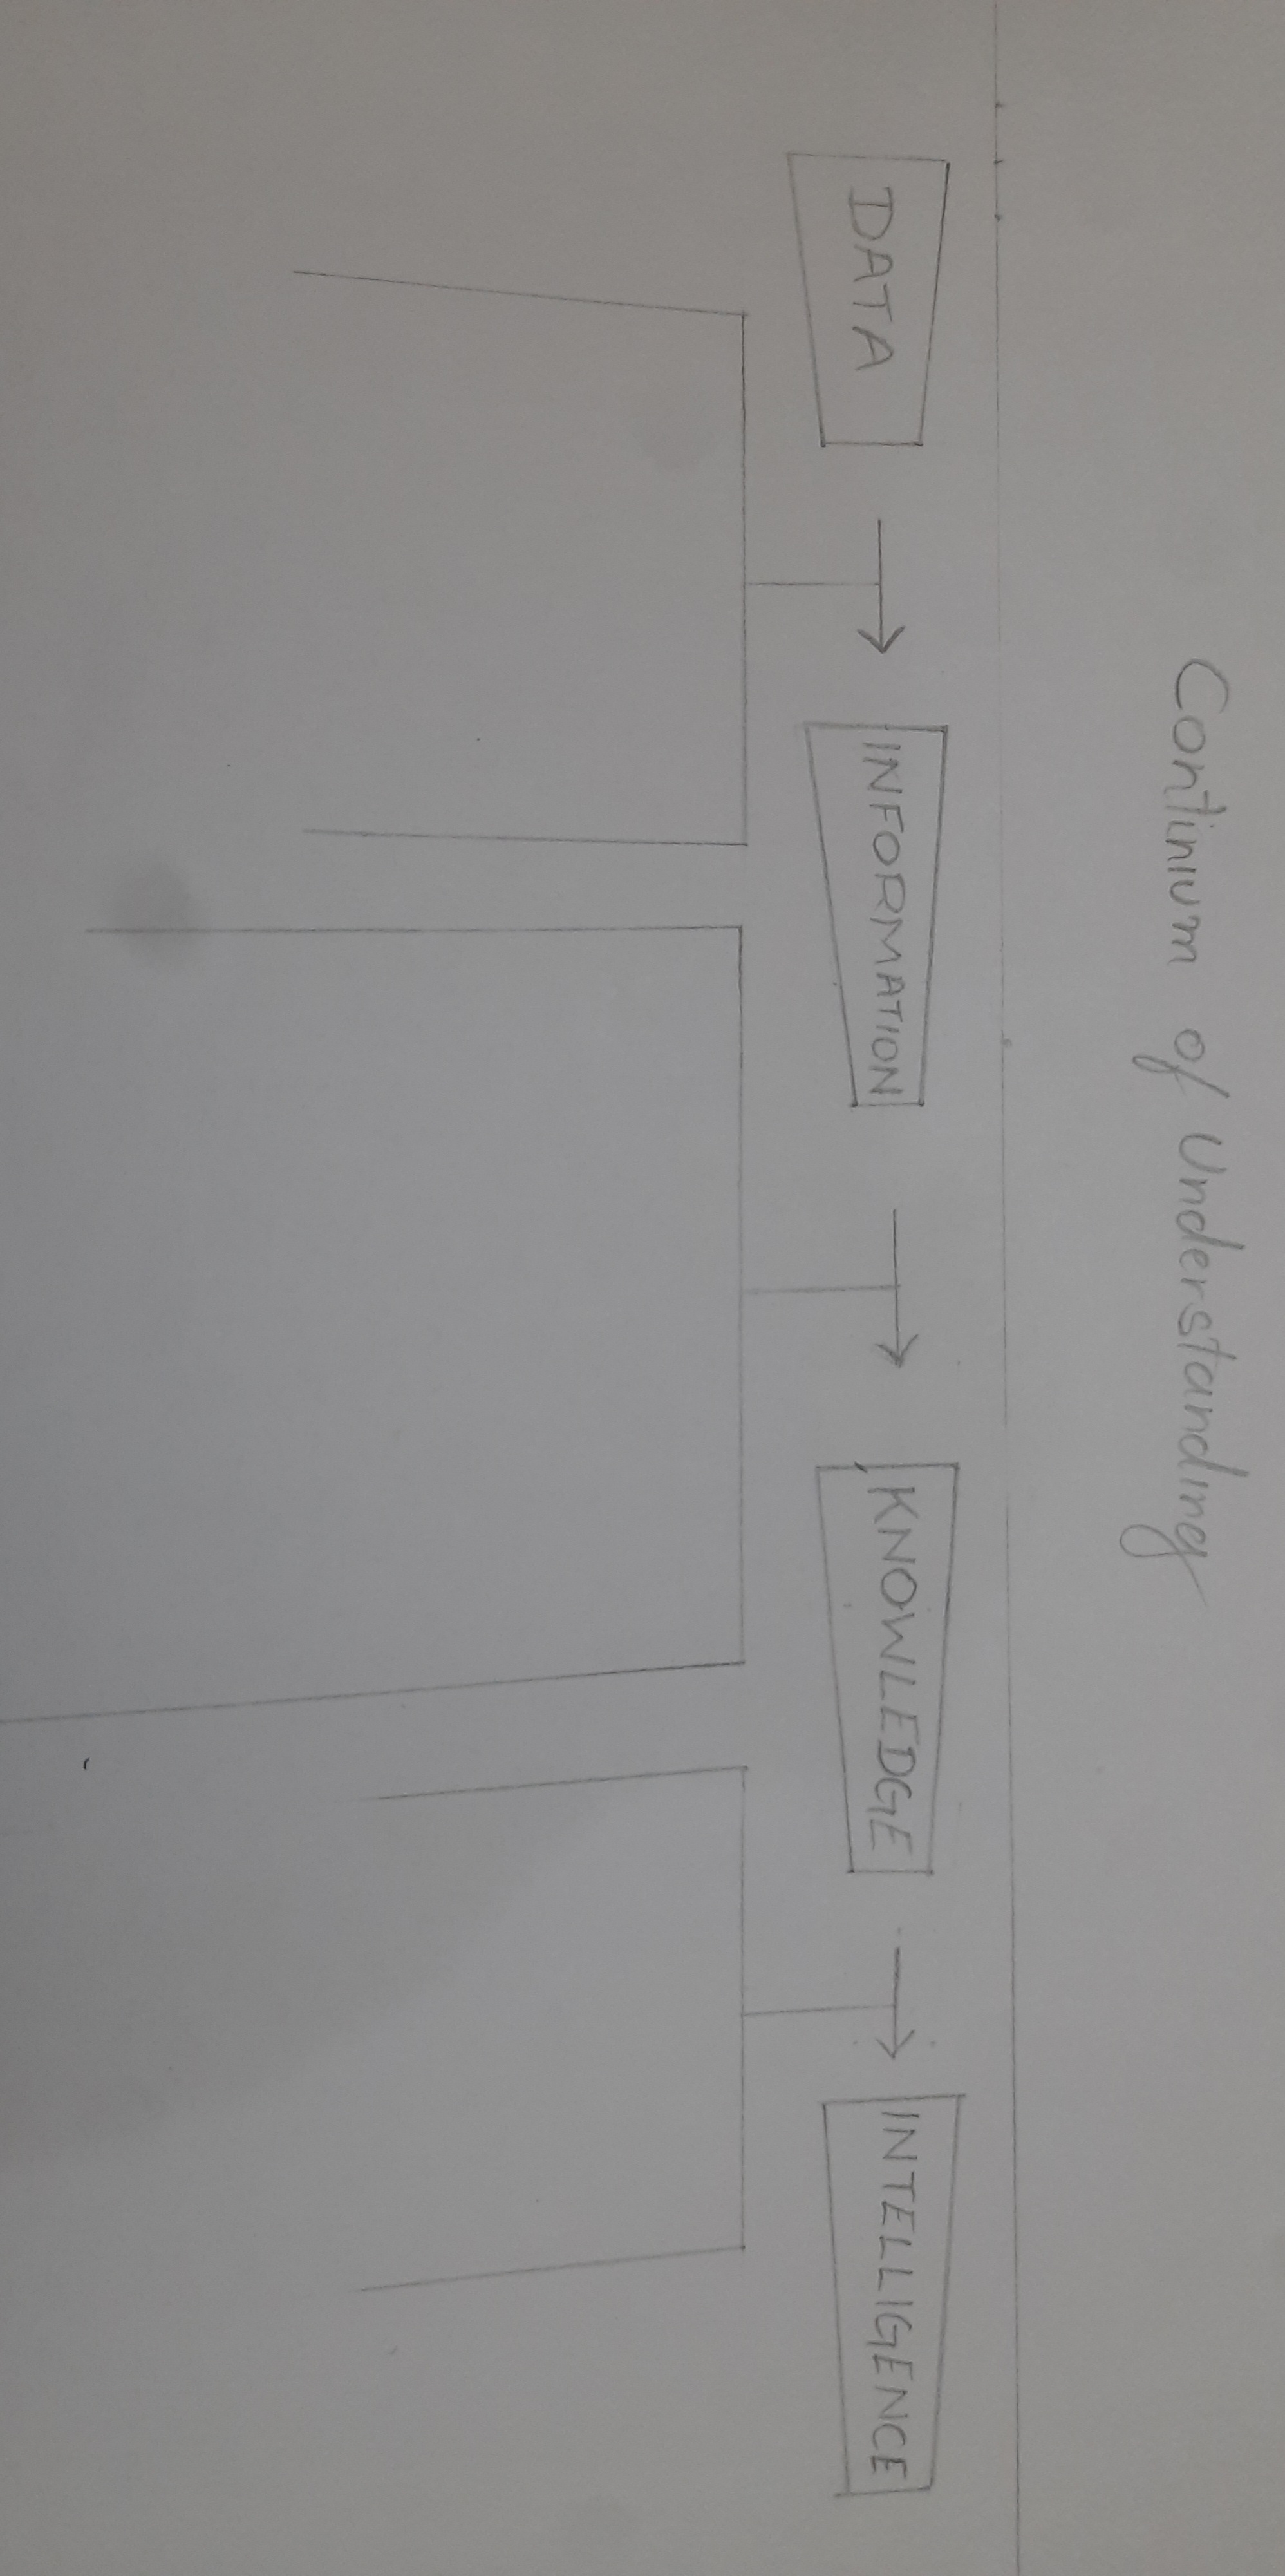 Continium of Understanding
DATA
INFORMATION
KNOWLEDGE
INTELLIGENCE